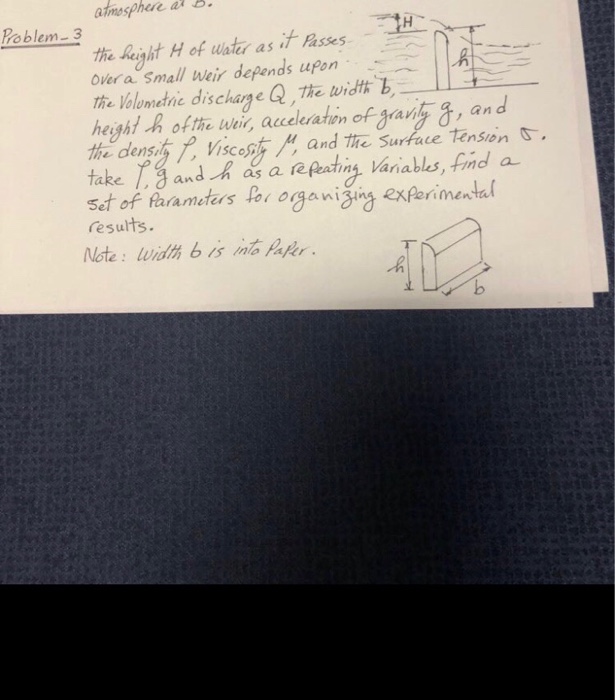 atmosphere at B.
Problem-3
H
the height H of water as it Passes
over a small weir depends upon
h
the Volumetric discharge Q, the width b,
height h of the weir, acceleration of gravity g, and
the density ρ, Viscosity μ, and the surface tension σ.
take ρ, g and h as a repeating Variables, find a
set of Parameters for organizing experimental
results.
Note: Width b is into Paper.
h
b